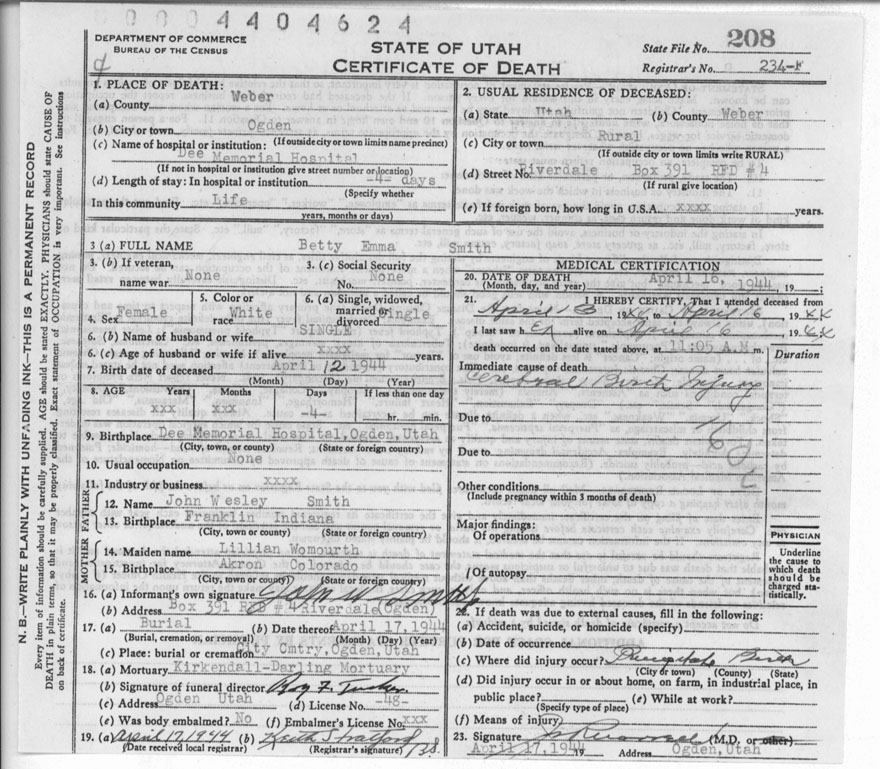 0000 4404624
DEPARTMENT OF COMMERCE
BUREAU OF THE CENSUS
STATE OF UTAH
CERTIFICATE OF DEATH
State File No. 208
Registrar's No. 234-
N. B.—WRITE PLAINLY WITH UNFADING INK—THIS IS A PERMANENT RECORD
Every item of information should be carefully supplied. AGE should be stated EXACTLY. PHYSICIANS should state CAUSE OF
DEATH in plain terms, so that it may be properly classified. Exact statement of OCCUPATION is very important. See instructions
on back of certificate.
1. PLACE OF DEATH:
(a) County Weber
(b) City or town Ogden
(c) Name of hospital or institution: (If outside city or town limits name precinct)
Dee Memorial Hospital
(If not in hospital or institution give street number or location)
(d) Length of stay: In hospital or institution -4- days
(Specify whether
In this community Life
years, months or days)
2. USUAL RESIDENCE OF DECEASED:
(a) State Utah (b) County Weber
(c) City or town Rural
(If outside city or town limits write RURAL)
(d) Street No. Riverdale Box 391 RFD #4
(If rural give location)
(e) If foreign born, how long in U.S.A. xxxx years.
3 (a) FULL NAME Betty Emma Smith
3. (b) If veteran,
name war None
3. (c) Social Security
No. None
4. Sex Female
5. Color or
race White
6. (a) Single, widowed,
married or
divorced Single
6. (b) Name of husband or wife SINGLE
6. (c) Age of husband or wife if alive xxxx years.
7. Birth date of deceased April 12 1944
(Month) (Day) (Year)
8. AGE Years Months Days If less than one day
xxx xxx -4- hr. min.
9. Birthplace Dee Memorial Hospital, Ogden, Utah
(City, town, or county) (State or foreign country)
10. Usual occupation None
11. Industry or business xxxx
FATHER
12. Name John Wesley Smith
13. Birthplace Franklin Indiana
(City, town or county) (State or foreign country)
MOTHER
14. Maiden name Lillian Womourth
15. Birthplace Akron Colorado
(City, town or county) (State or foreign country)
16. (a) Informant's own signature John W Smith
(b) Address Box 391 RFD #4 Riverdale (Ogden)
17. (a) Burial (b) Date thereof April 17, 1944
(Burial, cremation, or removal) (Month) (Day) (Year)
(c) Place: burial or cremation City Cmtry, Ogden, Utah
18. (a) Mortuary Kirkendall-Darling Mortuary
(b) Signature of funeral director Roy F. Tucker
(c) Address Ogden Utah (d) License No. -48-
(e) Was body embalmed? No (f) Embalmer's License No. xxx
19. (a) April 17, 1944 (b) Keith Stratford
(Date received local registrar) (Registrar's signature)
MEDICAL CERTIFICATION
20. DATE OF DEATH April 16, 1944 19
(Month, day, and year)
21. I HEREBY CERTIFY, That I attended deceased from
April 13, 1944 to April 16, 1944
I last saw her alive on April 16, 1944
death occurred on the date stated above, at 11:05 A.M m.
Duration
Immediate cause of death
Cerebral Birth Injury
Due to
Due to
Other conditions
(Include pregnancy within 3 months of death)
Major findings:
Of operations
Of autopsy
PHYSICIAN
Underline
the cause to
which death
should be
charged sta-
tistically.
22. If death was due to external causes, fill in the following:
(a) Accident, suicide, or homicide (specify)
(b) Date of occurrence
(c) Where did injury occur? Precipitate Birth
(City or town) (County) (State)
(d) Did injury occur in or about home, on farm, in industrial place, in
public place? (e) While at work?
(Specify type of place)
(f) Means of injury
23. Signature (M.D. or other)
April 17, 1944 19 Address Ogden, Utah